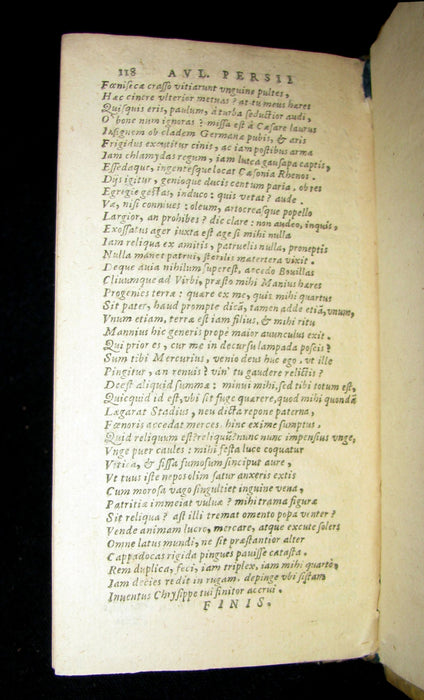 118 AVL. PERSII
Fœnisicæ crasso vitiarunt vnguine pultes,
Hæc cinere vlterior metuas? at tu meus hæres
Quisquis eris, paulum, à turba seductior audi,
O bone num ignoras? missa est à Cæsare laurus
Insignem ob cladem Germanæ pubis, & aris
Frigidus excutitur cinis, ac iam postibus arma
Iam chlamydas regum, iam lutea gausapa captis,
Essedaque, ingentesque locat Cæsonia Rhenos.
Dijs igitur, genioque ducis centum paria, ob res
Egregie gestas, induco: quis vetat? aude.
Væ, nisi conniues: oleum, artocreasque popello
Largior, an prohibes? dic clare: non audeo, inquis,
Exossatus ager juxta est age si mihi nulla
Iam reliqua ex amitis, patruelis nulla, proneptis
Nulla manet patrui, sterilis matertera vixit.
Deque auia nihilum superest, accedo Bouillas
Cliuumque ad Virbi, præsto mihi Manius hæres
Progenies terræ: quære ex me, quis mihi quartus
Sit pater, haud prompte dicā, tamen adde etiā, vnum,
Vnum etiam, terræ est iam filius, & mihi ritu
Mannius hic generis prope maior auunculus exit.
Qui prior es, cur me in decursu lampada poscis?
Sum tibi Mercurius, venio deus huc ego. vt ille
Pingitur, an renuis? vin' tu gaudere relictis?
Deest aliquid summæ: minui mihi, sed tibi totum est,
Quicquid id est, vbi sit fuge quærere, quod mihi quondā
Legarat Stadius, neu dicta repone paterna,
Fœnoris accedat merces. hinc exime sumptus.
Quid reliquum est? reliquū? nunc nunc impensius vnge,
Vnge puer caules: mihi festa luce coquatur
Vrtica, & fissa fumosum sinciput aure,
Vt tuus iste nepos olim satur anseris extis
Cum morosa vago singultiet inguine vena,
Patritiæ immeiat vuluæ? mihi trama figuræ
Sit reliqua? ast illi tremat omento popa venter?
Vende animam lucro, mercare, atque excute solers
Omne latus mundi, ne sit præstantior alter
Cappadocas rigida pingues pauisse catasta.
Rem duplica, feci, iam triplex, iam mihi quartò,
Iam decies redit in rugam. depinge vbi sistam
Inuentus Chrysippe tui finitor acerui.
FINIS.